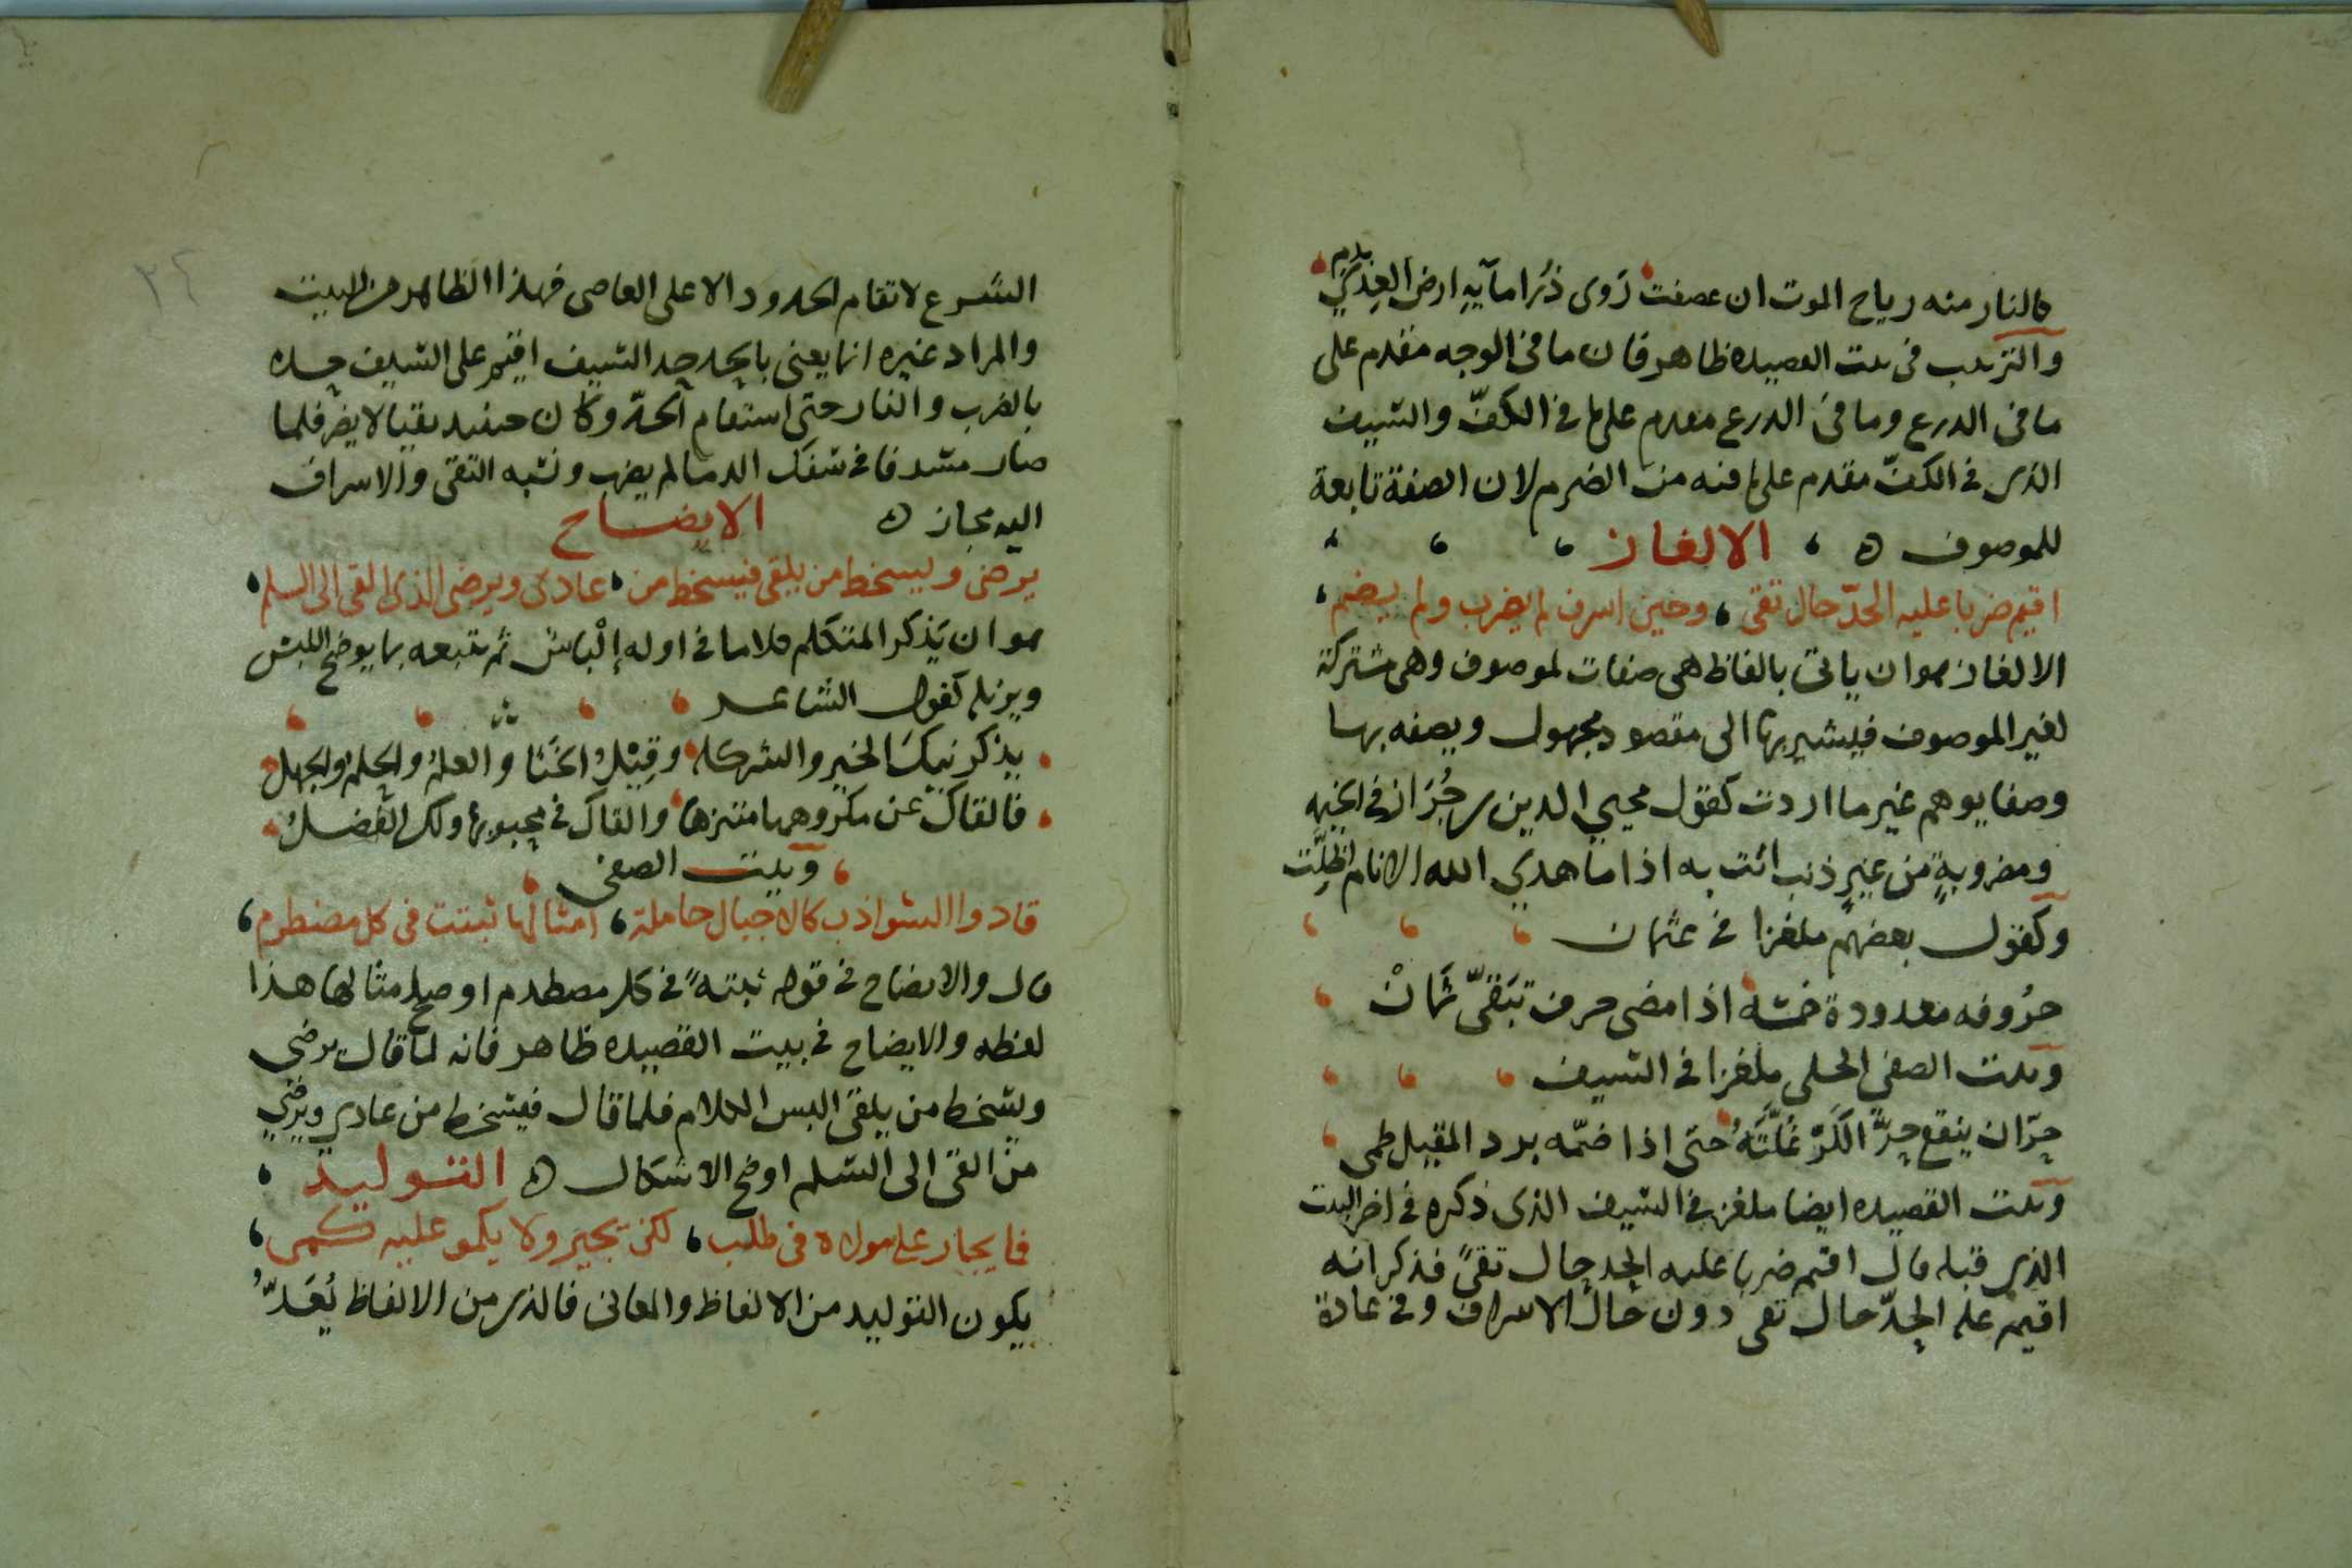 كالنار منه رياح الموت ان عصفت روى ذرا مآيه ارض العدى بدم
والترتيب فى بيت القصيده ظاهر فان ما فى الوجه مقدم على
ما فى الدرع وما فى الدرع مقدم على ما فى الكفّ والسيف
الذى فى الكفّ مقدم على ما فيه من الضرم لان الصفة تابعة
للموصوف ه الالغاز
اقيم ضربا عليه الحدّ حال تقى وحين اسرف لم يضرب ولم يضم
الالغاز هو ان ياتى بالفاظ هى صفات لموصوف وهى مشتركة
لغير الموصوف فيشير بها الى مقصود مجهول ويصفه بها
وصفا يوهم غير ما اردت كقول محيي الدين
ومضروبةٍ من غيرِ ذنب اتت به اذا ما هدي الله الانام اظلّت
وكقول بعضهم ملغزا فى عثمان
حرُوفه معدودة خمسَه اذا مضى حرف تبَقىّ ثمانْ
وبيت الصفى الحلى ملغزا فى السيف
حرّان ينقع حرَّ الكَرّ غُلَّتَهُ حتى اذا ضمّه برد المقيل ظمى
وبيت القصيده ايضا ملغز فى السيف الذى ذكره فى اخر البيت
الذى قبله قال اقيم ضربا عليه الحد حال تقىً فذكر انه
اقيم عليه الحدّ حال تقى دون حال الاسراف وفى عادة
الشرع لا تقام الحدود الا على العاصى فهذا الظاهر من البيت
والمراد غيره انما يعنى بالحد حد السيف اقيم على السيف حده
بالضرب والنار حتى استقام الحدّ وكان حينيد نقيا لا يضر فلما
صار مسرفا فى سفك الدما لم يضرب ونسبه التقى والاسراف
اليه مجاز ه الايضاح
يرضى ويسخط من يلقى فيسخط من عادى ويرضى الذى القى الى السلم
هو ان يَذكر المتكلم كلاما فى اوله إلْباسْ ثم يتبعه بما يوضح اللبس
ويزيله كقول الشاعر
يذكرنيك الخير والشر كله وقِيْلُ الخَنَا والعلمُ والحلمُ والجهل
فالقاك عن مكروهها متنزها والقاك فى محبوبها ولك الفضلُ
وبيت الصفى
قادوا الشواذب كالاجبال حاملة امثالها ثبتت فى كل مصطرم
قال والايضاح فى قوله ثبتهً فى كل مصطدم اوضح امثالها هذا
لفظه والايضاح فى بيت القصيده ظاهر فانه لما قال يرضى
ويسخط من يلقى البس الكلام فلما قال فيسخط من عادي ويرضي
من القى الى السلم اوضح الاشكال ه التوليد
فما يجار على مولاه فى طلب لكن يجير ولا يكمو عليه كمى
يكون التوليد من الالفاظ والمعانى فالذى من الالفاظ يُعَدّ